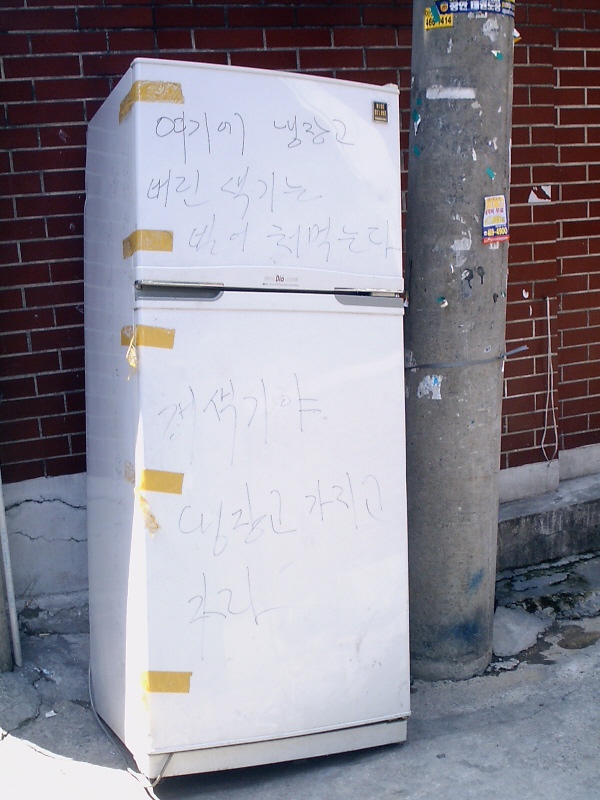 466-1414
WIDE
DELUXE
여기에 냉장고
버린 색기는
빌어 쳐먹는다
Dio
개색기야
냉장고 가지고
가라